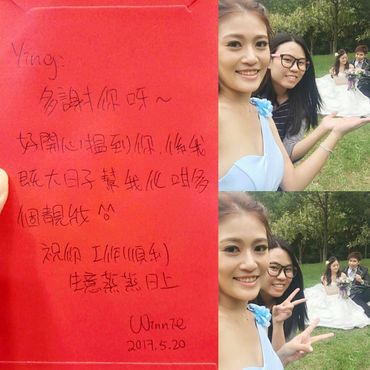 Ying:
多謝你呀～
好開心搵到你，係我
既大日子幫我化咁多
個靚妝 ^^
祝你 工作順利
生意蒸蒸日上
Winnie
2017.5.20